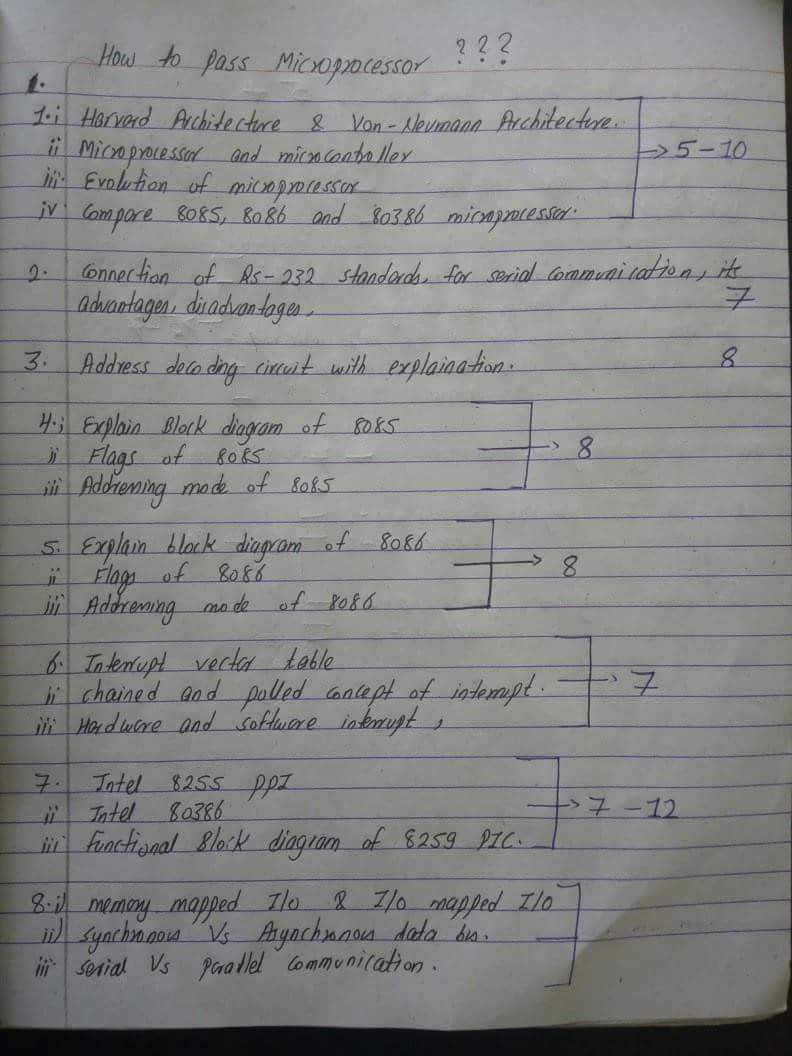 How to pass Microprocessor ???
1.
1.i Harvard Architecture & Von-Neumann Architecture.
ii Microprocessor and microcontroller → 5-10
iii. Evolution of microprocessor
iv. Compare 8085, 8086 and 80386 microprocessor.
2. Connection of Rs-232 standards, for serial communication, its
advantages, disadvantages, 7
3. Address decoding circuit with explaination. 8
4.i Explain Block diagram of 8085
ii Flags of 8085 → 8
iii Addressing mode of 8085
5. Explain block diagram of 8086
ii Flags of 8086 → 8
iii Addressing mode of 8086
6. Interrupt vector table
ii chained and polled concept of interrupt. → 7
iii Hardware and software interrupt,
7. Intel 8255 PPI
ii Intel 80386 → 7-12
iii Functional Block diagram of 8259 PIC.
8.i) memory mapped I/o & I/o mapped I/o
ii) synchronous Vs Asynchronous data bus.
iii serial Vs parallel communication.